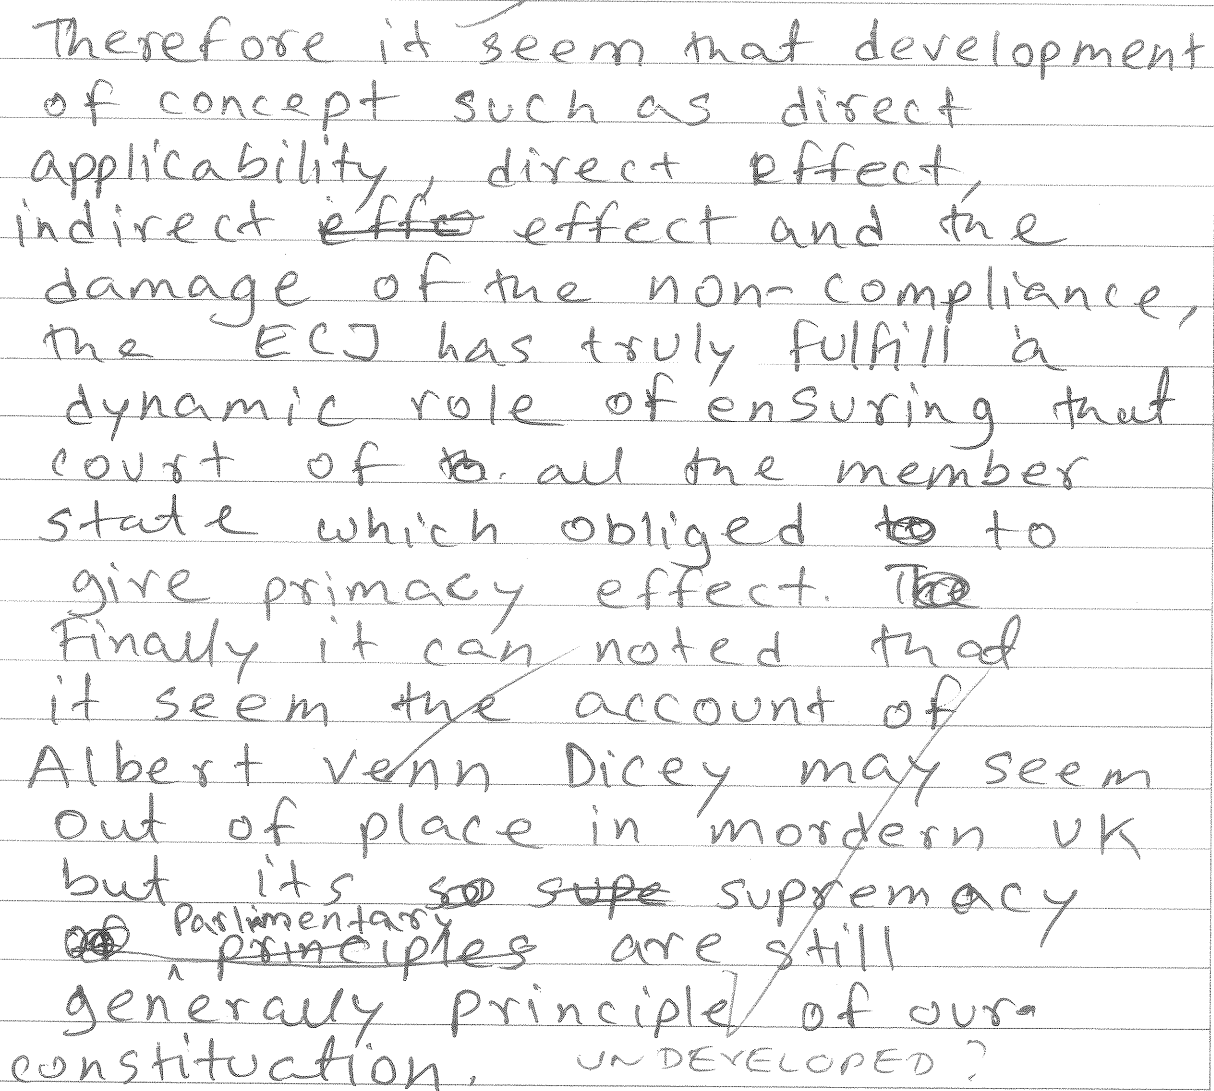 Therefore it seem that development
of concept such as direct
applicability, direct effect,
indirect effe effect and the
damage of the non-compliance,
the ECJ has truly fulfill a
dynamic role of ensuring that
court of all the member
state which obliged to to
give primacy effect. The
Finally it can noted that
it seem the account of
Albert Venn Dicey may seem
out of place in mordern UK
but its so supe supremacy
Parlimentary
of principles are still
generally principle of our
constituation. UNDEVELOPED?